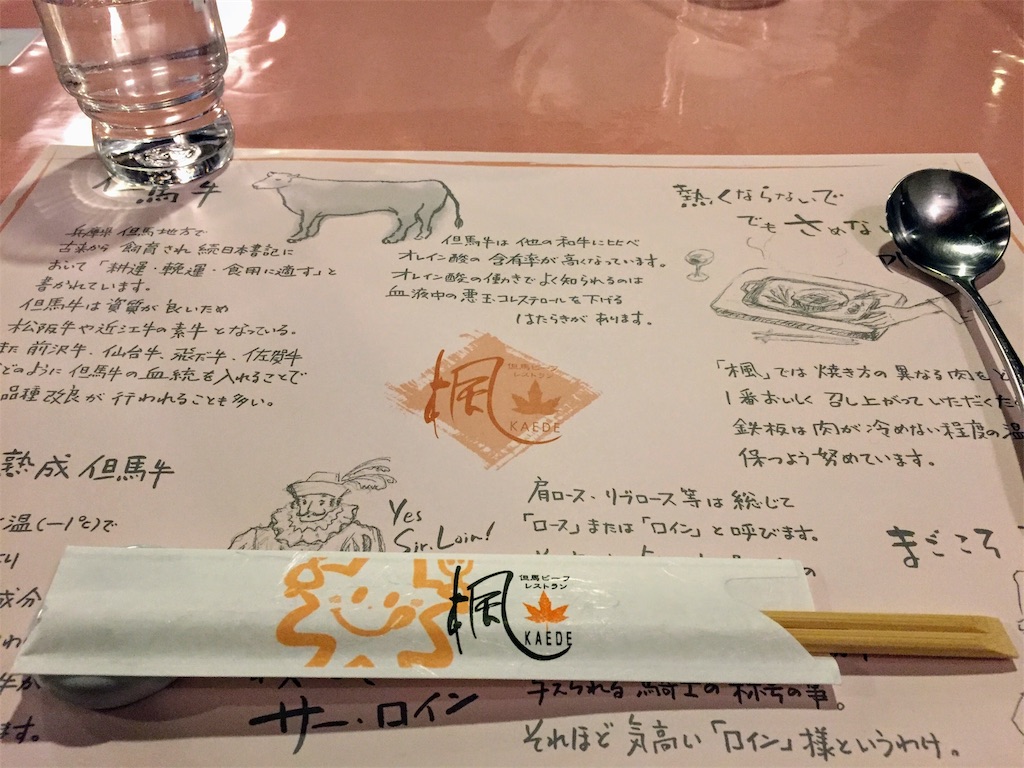 但馬牛
兵庫県 但馬地方で
古来から 飼育され 続日本書記に
おいて「耕運・輓運・食用に適す」と
書かれています。
但馬牛は資質が良いため
松阪牛や近江牛の素牛となっている。
また 前沢牛、仙台牛、飛だ牛、佐賀牛
どのように 但馬牛の血統も入れることで
品種改良が 行われることも多い。
但馬牛は 他の和牛に比べ
オレイン酸の 含有率が高くなっています。
オレイン酸の働きでよく知られるのは
血液中の悪玉コレステロールを下げる
はたらきが あります。
熱くならないで
でも さめない
「楓」では 焼き方の 異なる肉を
1番おいしく 召し上がって いただく
鉄板は肉が 冷めない程度の温
保つよう 努めています。
楓
但馬ビーフ
レストラン
KAEDE
熟成 但馬牛
温(-1℃)で
成分
Yes
Sir.Loin!
肩ロース・リブロース等は 総じて
「ロース」または「ロイン」と呼びます。
まごころ
楓
但馬ビーフ
レストラン
KAEDE
サー・ロイン
与えられる 騎士の 称号の事。
それほど 気高い「ロイン」様というわけ。